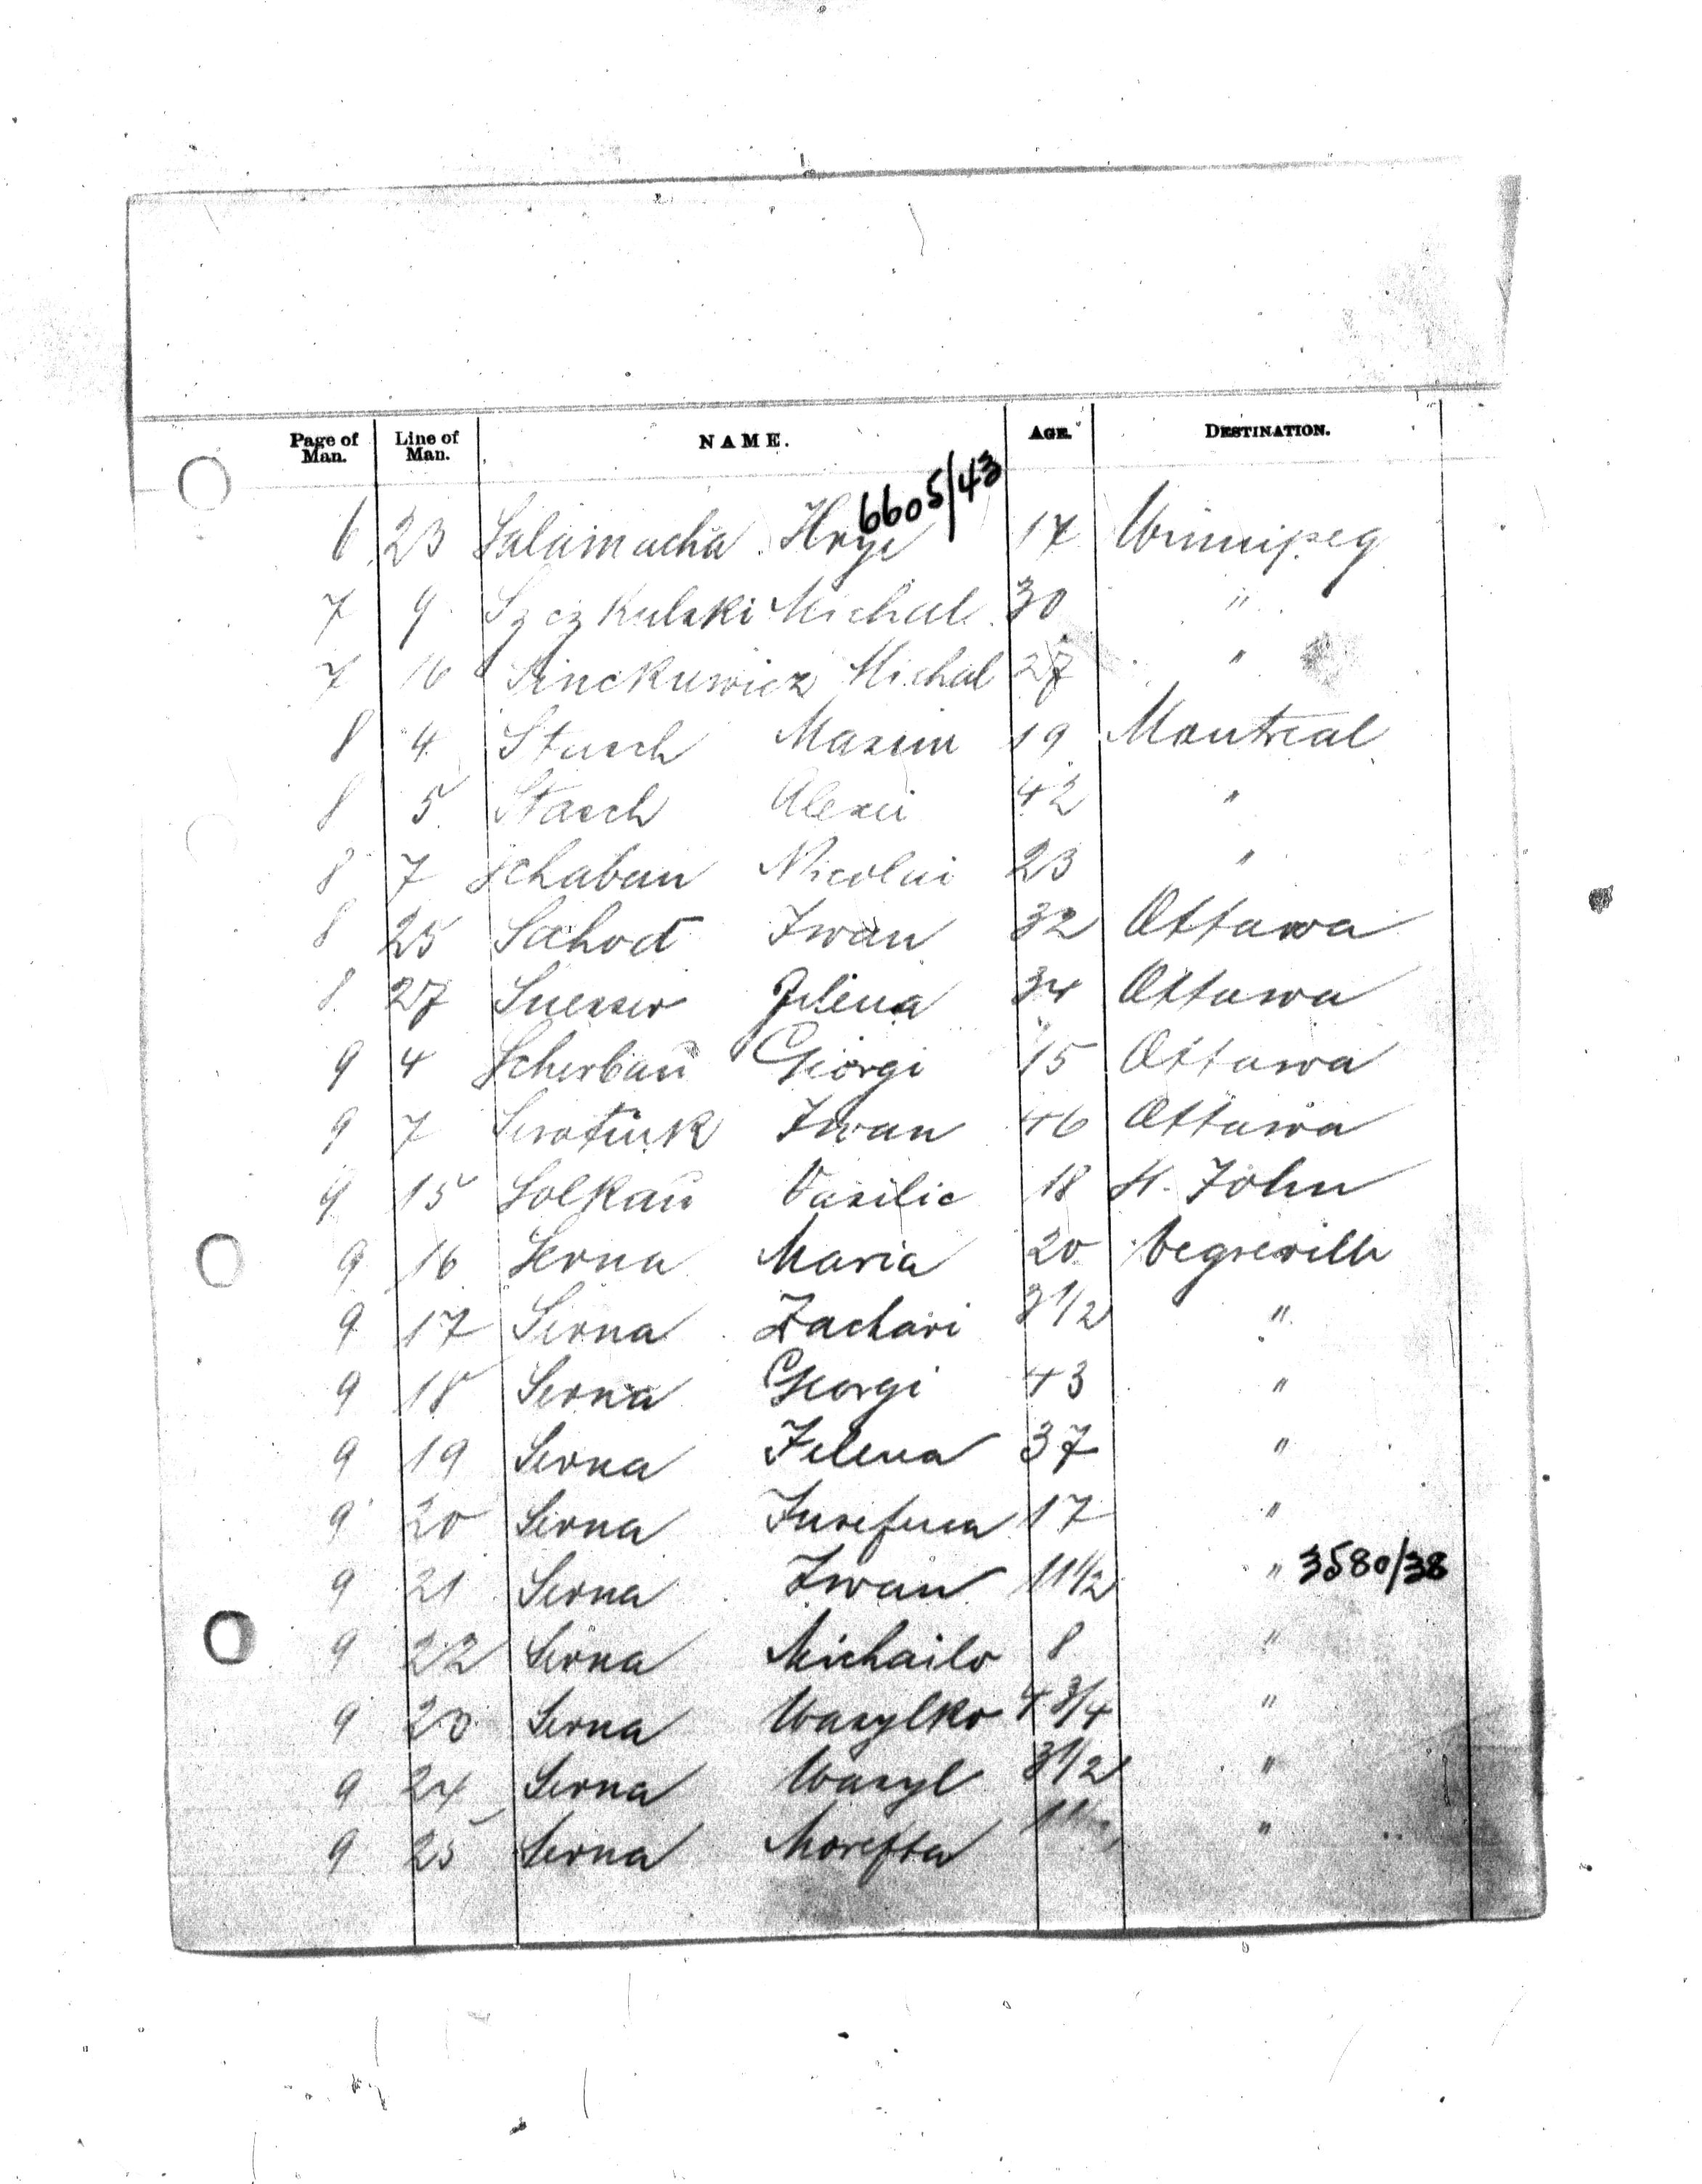 Page of Man. Line of Man. NAME. AGE. DESTINATION.
6605/43
6 23 Salamacha Hryc 17 Winnipeg
7 9 Szczkulski Michal 30 "
7 16 Michal 27 "
8 4 Stasch Maxim 19 Montreal
8 5 Stasch Alexei 42 "
8 7 Schaban Nicolai 23 "
8 25 Sachod Iwan 32 Ottawa
8 27 Jelena 34 Ottawa
9 4 Scherbaŭ Giorgi 15 Ottawa
9 7 Iwan 46 Ottawa
9 15 Solkaŭ Vasilie 18 St. John
9 16 Serna Maria 20 Vegreville
9 17 Serna Zachari 3 1/2 "
9 18 Serna Georgi 43 "
9 19 Serna Jelena 37 "
9 20 Serna 17 "
9 21 Serna Iwan 11 1/2 " 3580/38
9 22 Serna Michailo 8 "
9 23 Serna Wasylko 4 3/4 "
9 24 Serna Wasyl 3 1/2 "
9 25 Serna "